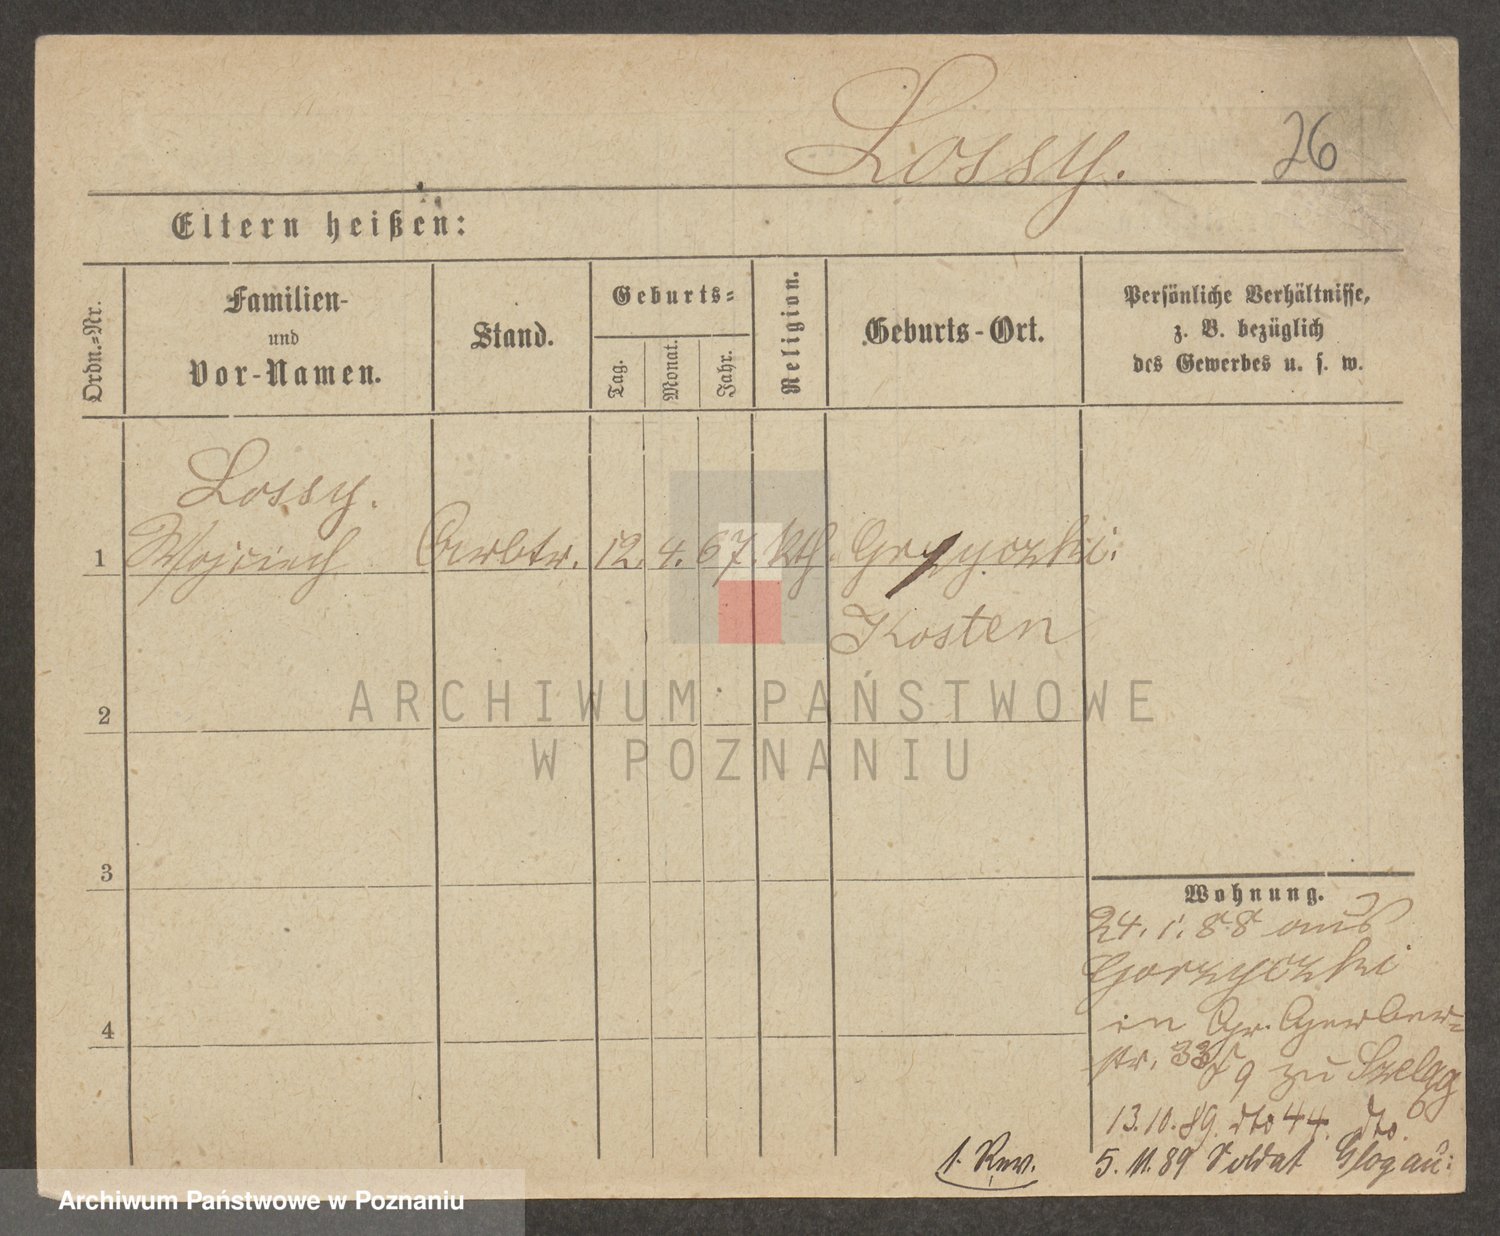 Lossy.
26
Eltern heißen:
Ordn.=Nr.
Familien-
und
Vor-Namen.
Stand.
Geburts=
Tag.
Monat.
Jahr.
Religion.
Geburts-Ort.
Persönliche Verhältnisse,
z. B. bezüglich
des Gewerbes u. s. w.
Lossy.
1 Wojciech Arbtr. 12. 4. 67. kth. Gryczki.
Kosten
2
3
4
Wohnung.
24. 1. 88 aus
Gorzyczki
in Gr. Gerber=
str. 33 9 zu
13. 10. 89. dto 44. dto.
5. 11. 89 Soldat Glogau:
1. Rev.
ARCHIWUM PAŃSTWOWE
W POZNANIU
Archiwum Państwowe w Poznaniu